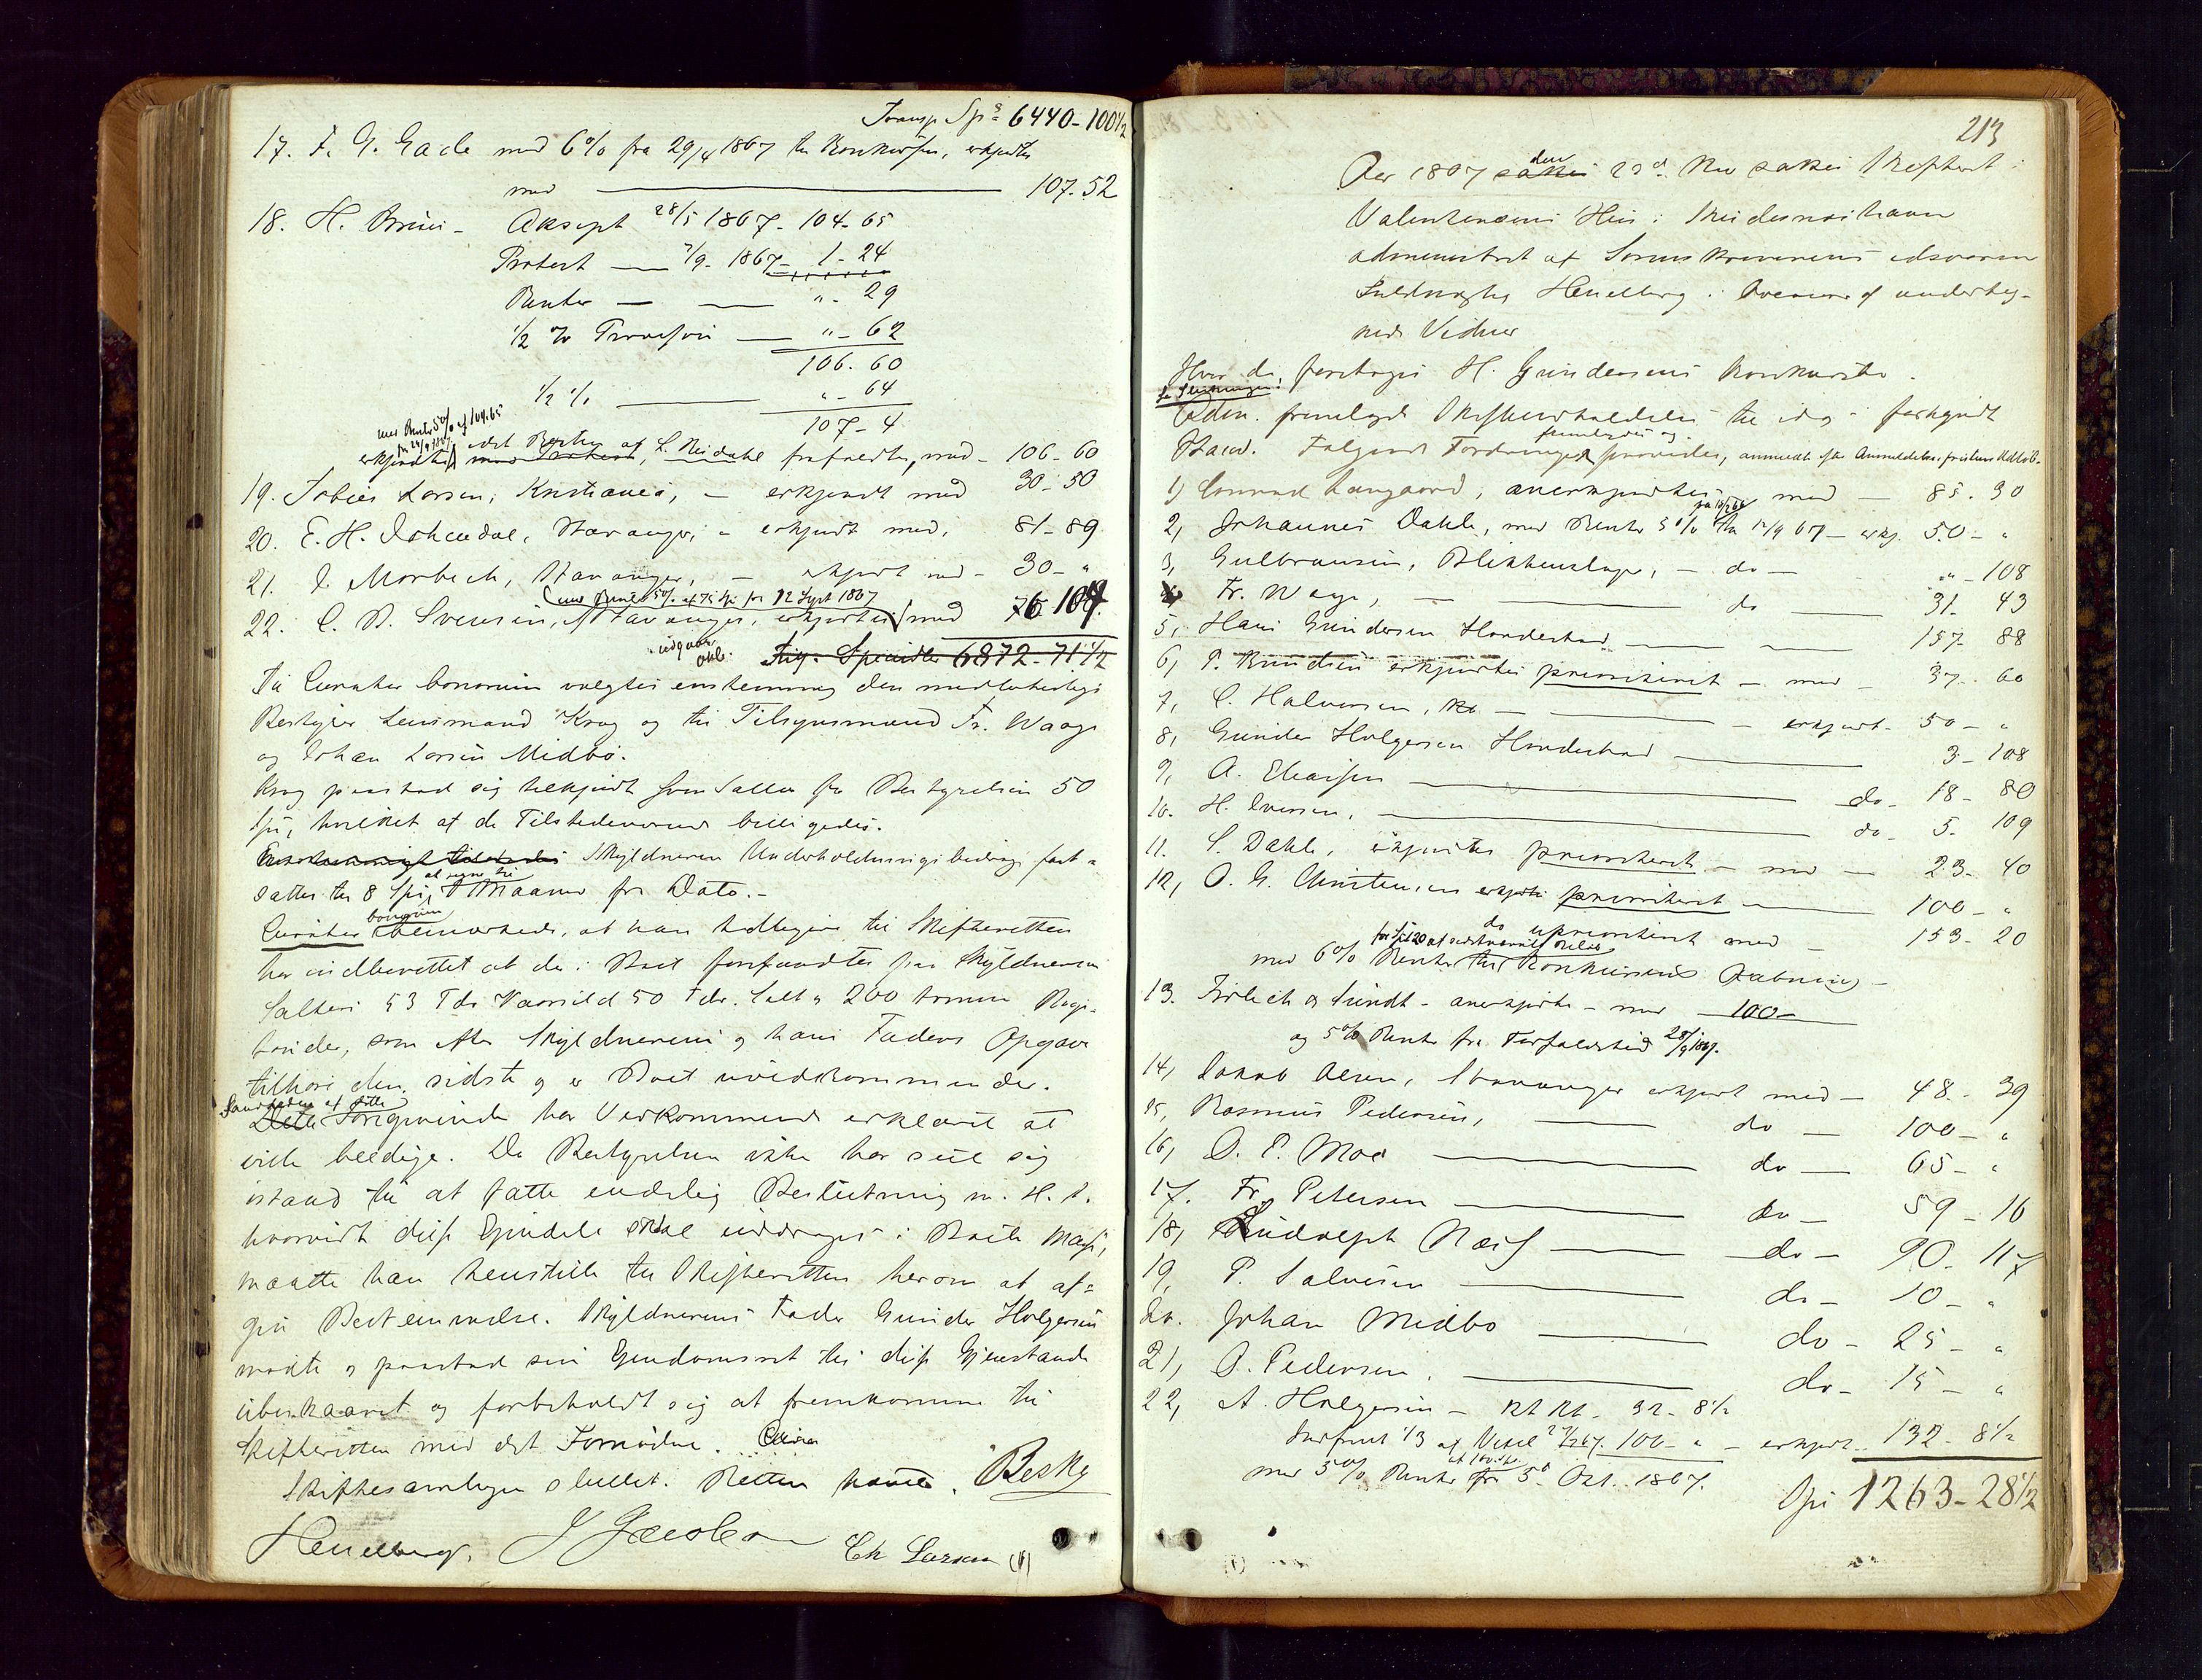 Transp. Spd 6440-100½
17. F. G. Gade med 6% fra 29/4 1867 til Konkursen, erkjendtes
med — 107. 52
18. H. Bruun - Aksept 28/5 1867 - 104-65
Protest — 7/9 - 1867 - 1-24
Renter — — " - 29
1/2 % Provision — " - 62
106. 60
1/2 % — " - 64
107-4
med Renter 5% af 104.65
erkjendtes idet Resten af L. Reidahl frafaldtes, med - 106-60
19. Tobias Larsen, Kristiania, - erkjendt med 30-50
20. E. H. Stavanger, - erkjendt med, 81-89
21. Morbech, Stavanger, - erkjendt med - 30-"
med Renter 5% af 75 Spd fra 12 Sept 1867
22. C. B. Svensen, Stavanger, erkjendtes med 76 104.
Trp. Speciedlr 6872-71½
Til Curator bonorum valgtes enstemmig den midlertidige
Bestyrer Lensmand Krag og til Tilsynsmænd Fr. Waage
og Johan Larsen Midbø.
Krag paastod sig tilkjendt som Salær for Bestyrelsen 50
Spd, hvilket af de Tilstedeværende billigedes.
Skyldneren Underholdningsbidrag fast-
sattes til 8 Spd, Maaned fra Dato.-
bonorum
Curator bemærkede, at han tidligere til Skifteretten
har indberettet at der i Boet forefandtes paa Skyldnerens
Salteri 53 Tdr Vaarsild 50 Tdr. Salt og 200 tomme
tønder, som efter Skyldnerens og hans Faders Opgave
tilhøre den sidste og er Boet uvedkommende.
Sandheden af dette
Foregivende har Vedkommende erklæret at
ville beedige. Da Bestyrelsen ikke har seet sig
istand til at fatte endelig Beslutning m. H. t.
hvorvidt disse Eiendele skal inddrages i Boets Masse,
maatte han henstille til Skifteretten herom at af-
give Bestemmelse. Skyldnerens Fader Gunder Holgersen
mødte og paastod sin Eiendomsret til disse Gjenstande
ubeskaaret og forbeholdt sig at fremkomme til
Skifteretten med det Fornødne.
Skiftesamlingen sluttet. Retten hævet. Beskg
Henelberg. J Jacobsen Chr Larsen
213
den
Aar 1867 23d Nov sattes Skifteret i
Valentinsens Hus i Skudesneshavn
administret af Sorenskriverens edsvorne
Fuldmægtig Henelberg i Overvær af underteg-
nede Vidner
Hvor da foretoges H. Gundersens Konkursbo.
Adm. fremlagde Skifteindkaldelse til idag - forkyndt
fremlagdes og
Følgende Fordringer prøvedes, anmeldt efter Anmeldelsesfristens Udløb.
1) Conrad Langaard, anerkjendtes med — 85. 30
2, Johannes Dahle, med Renter 5% fra 12/9 67 - erkj. 50-"
3, Gulbransen, Blikkenslager, - do - " - 108
4, Fr. Waage, — do — 31. 43
5, Hans Gundersen — — 157. 88
6, P. Knudsen erkjendtes prioriteret - med - 37. 60
7, C. Halvorsen, — - erkjendt. 50 - "
8, Gunder Holgersen — 3 - 108
9, A. — do - 18 - 80
10. H. Iversen, — do - 5. 109
11. S. Dahle, erkjendtes prioriteret - med — 23. 40
12, O. G. Christensen erkjendtes prioriteret — 100 - "
do uprioriteret med - 153-20
med 6% Renter til Konkursens Aabning -
13. og Sundt - anerkjendtes - med — 100 —
og 5% Renter fra Forfaldstid 28/9 1867.
14, Jakob Olsen, Stavanger erkjendt med — 48. - 39
15, Rasmus Pedersen, — do — 100 - "
16, O. P. Moe — do — 65 - "
17. Fr. Petersen — do - 59 - 16
18, Rudolph Næss — do - 90. 117
19, P. Salvesen — do - 10 - "
20. Johan Midbø — do - 25 - "
21, O. Pedersen, — do - 15 - "
22, A. Holgersen - 32. 8½
1/3 af Vexel 100 - " - erkjendt. 132. 8½
med 5% Renter fra 5d Okt. 1867.
Spd 1263-28½